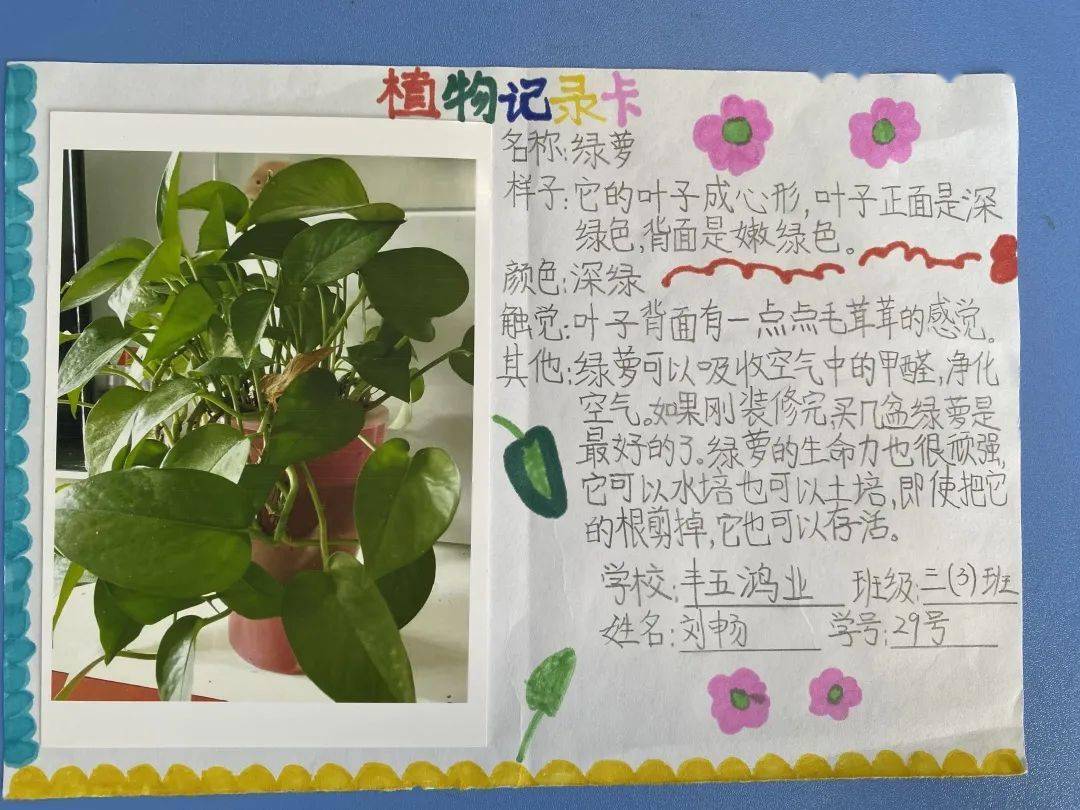 植物记录卡
名称:绿萝
样子:它的叶子成心形,叶子正面是深
绿色,背面是嫩绿色。
颜色:深绿
触觉:叶子背面有一点点毛茸茸的感觉。
其他:绿萝可以吸收空气中的甲醛,净化
空气。如果刚装修完,买几盆绿萝是
最好的了。绿萝的生命力也很顽强,
它可以水培也可以土培,即使把它
的根剪掉,它也可以存活。
学校:丰五鸿业 班级:三(3)班
姓名:刘畅 学号:29号